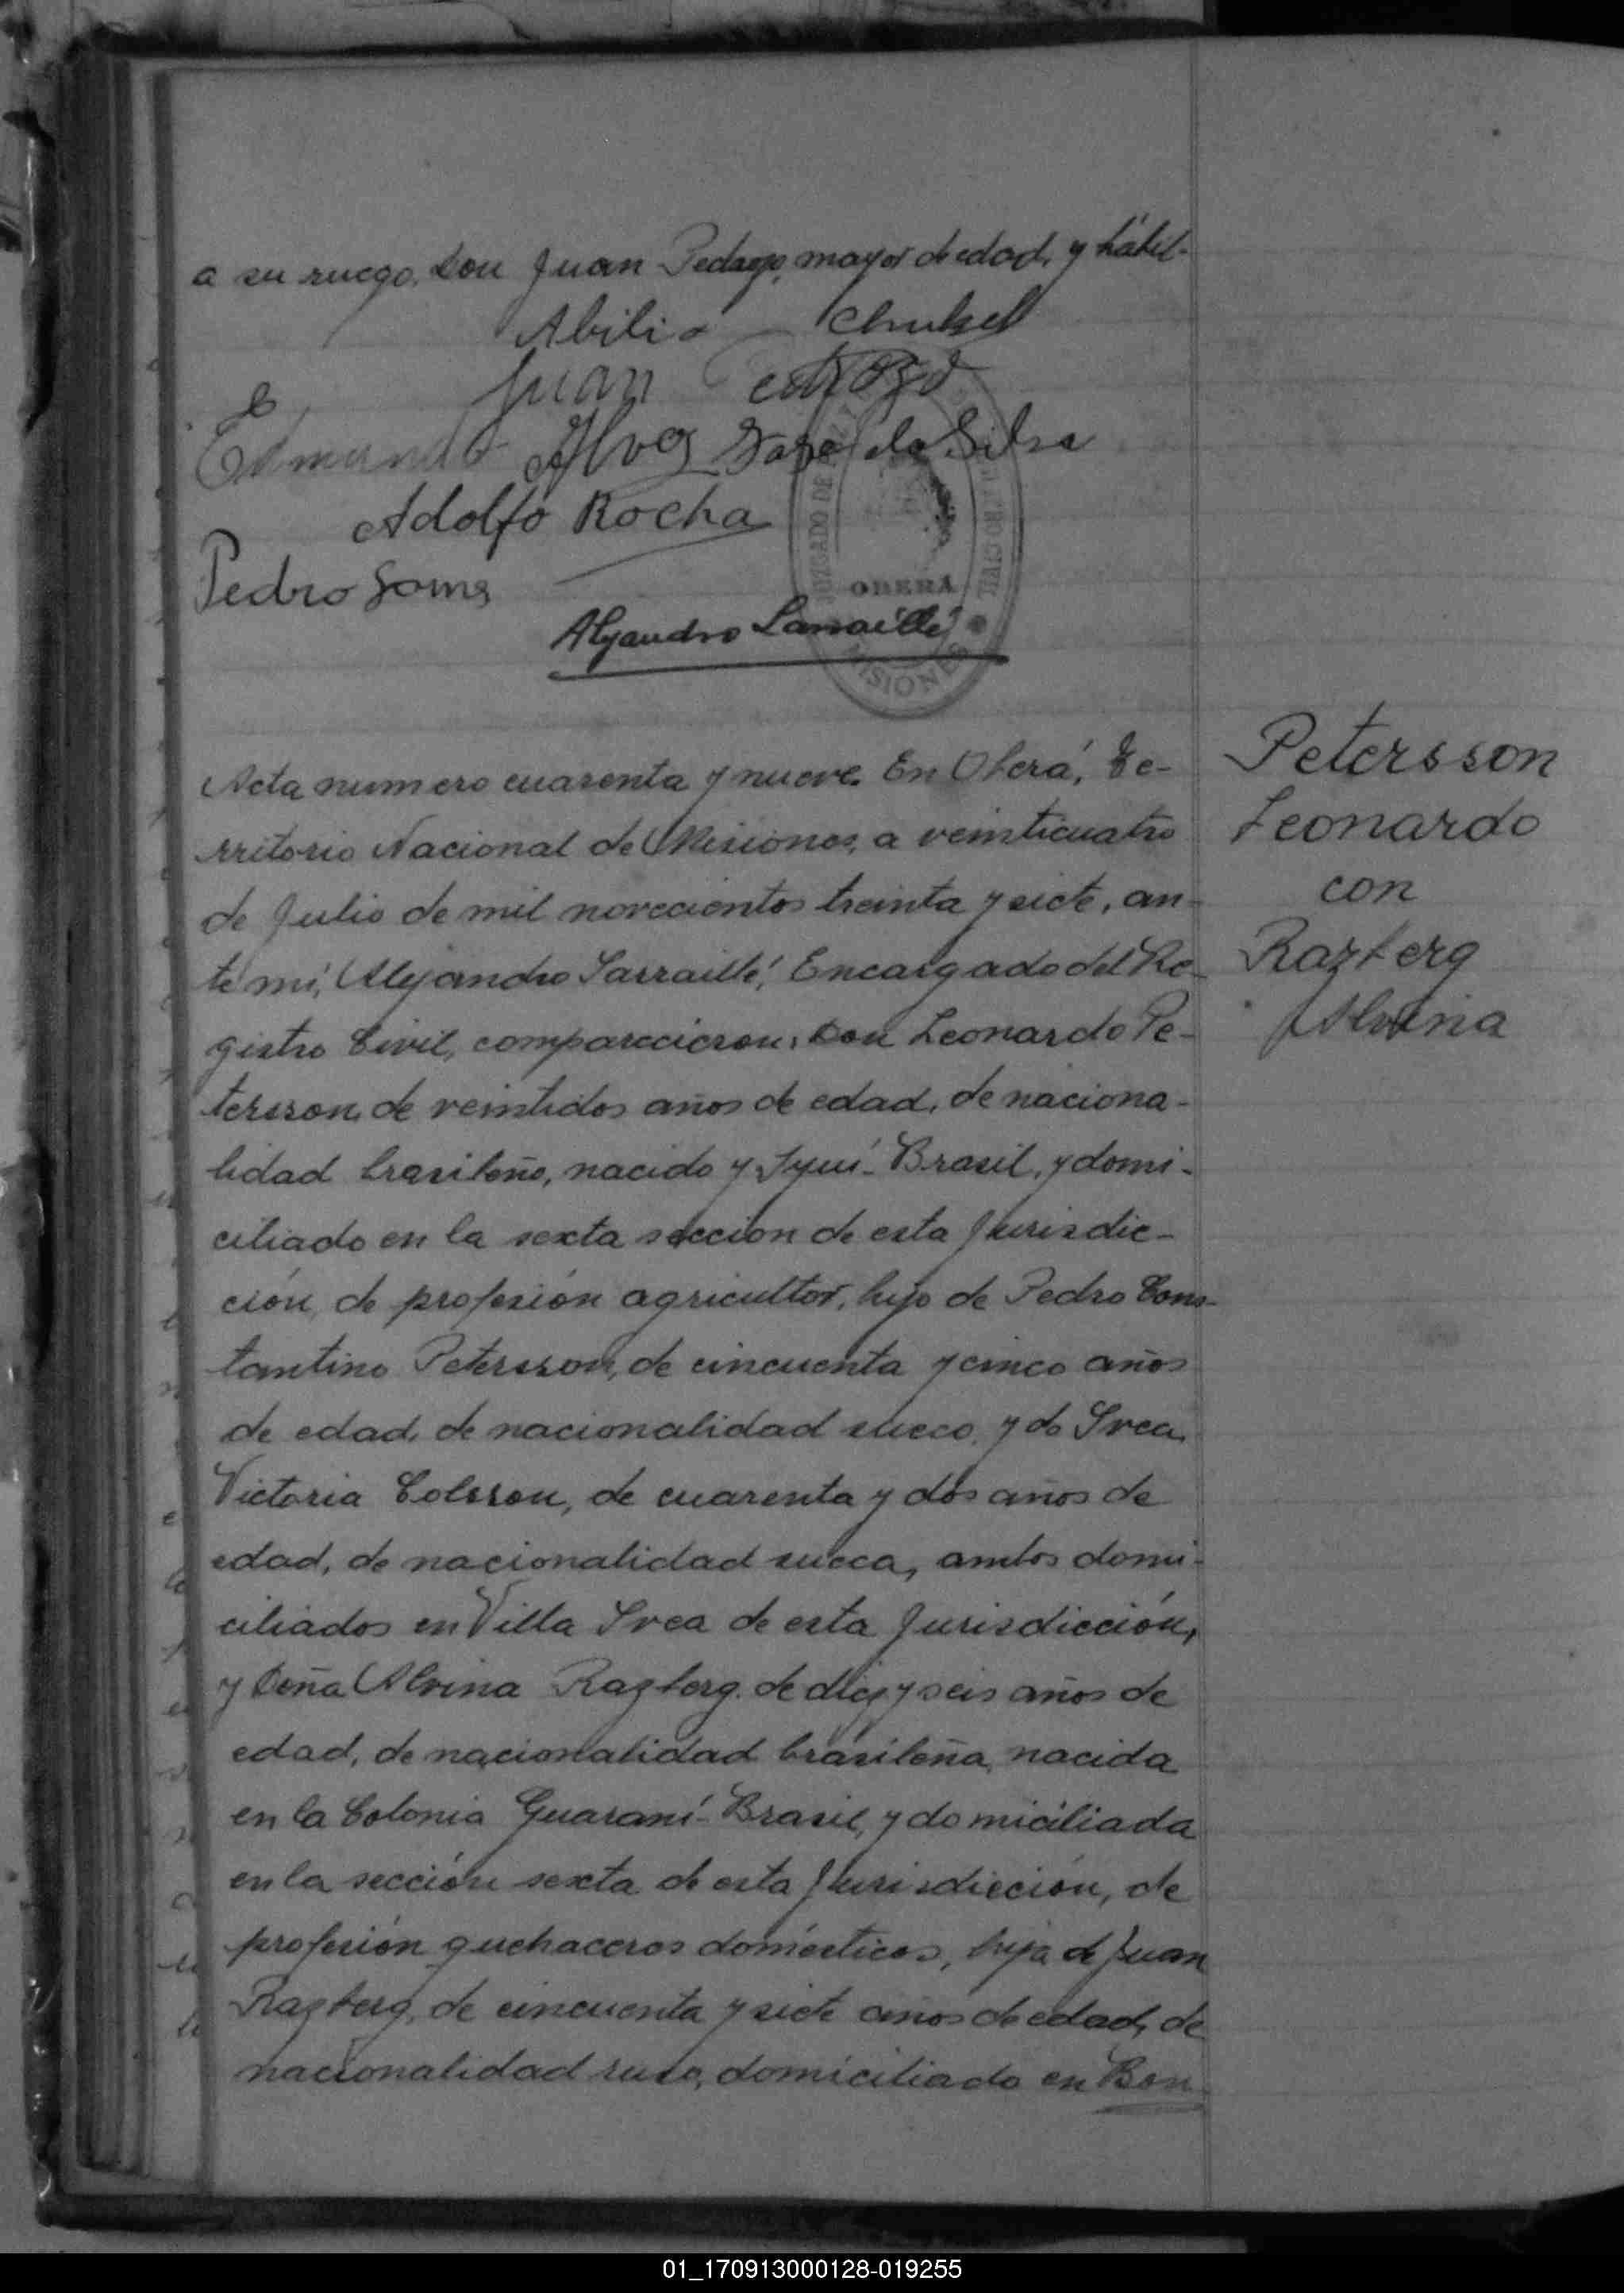 a su ruego, Don Juan Pedrozo, mayor de edad, y hábil.
Abilio
Juan Pedrozo
Edmundo Alves José da Silva
Adolfo Rocha
Pedro Goms
OBERÁ
Alejandro Sarraillé
MISIONES
Petersson
Leonardo
con
Razberg
Alvina
Acta numero cuarenta y nueve. En Oberá, Te-
rritorio Nacional de Misiones, a veinticuatro
de Julio de mil novecientos treinta y siete, an-
te mí, Alejandro Sarraillé, Encargado del Re-
gistro Civil, comparecieron: Don Leonardo Pe-
tersson, de veintidos años de edad, de naciona-
lidad brasileño, nacido y Yyuí-Brasil, y domi-
ciliado en la sexta sección de esta Jurisdic-
ción, de profesión agricultor, hijo de Pedro Cons-
tantino Petersson, de cincuenta y cinco años
de edad, de nacionalidad sueco, y de Svea
Victoria Colsson, de cuarenta y dos años de
edad, de nacionalidad sueca, ambos domi-
ciliados en Villa Svea de esta Jurisdicción,
y Doña Alvina Razberg, de diez y seis años de
edad, de nacionalidad brasileña, nacida
en la Colonia Guaraní-Brasil, y domiciliada
en la sección sexta de esta Jurisdicción, de
profesión quehaceres domésticos, hija de Juan
Razberg, de cincuenta y siete años de edad, de
nacionalidad ruso, domiciliado en Bon
01_170913000128-019255